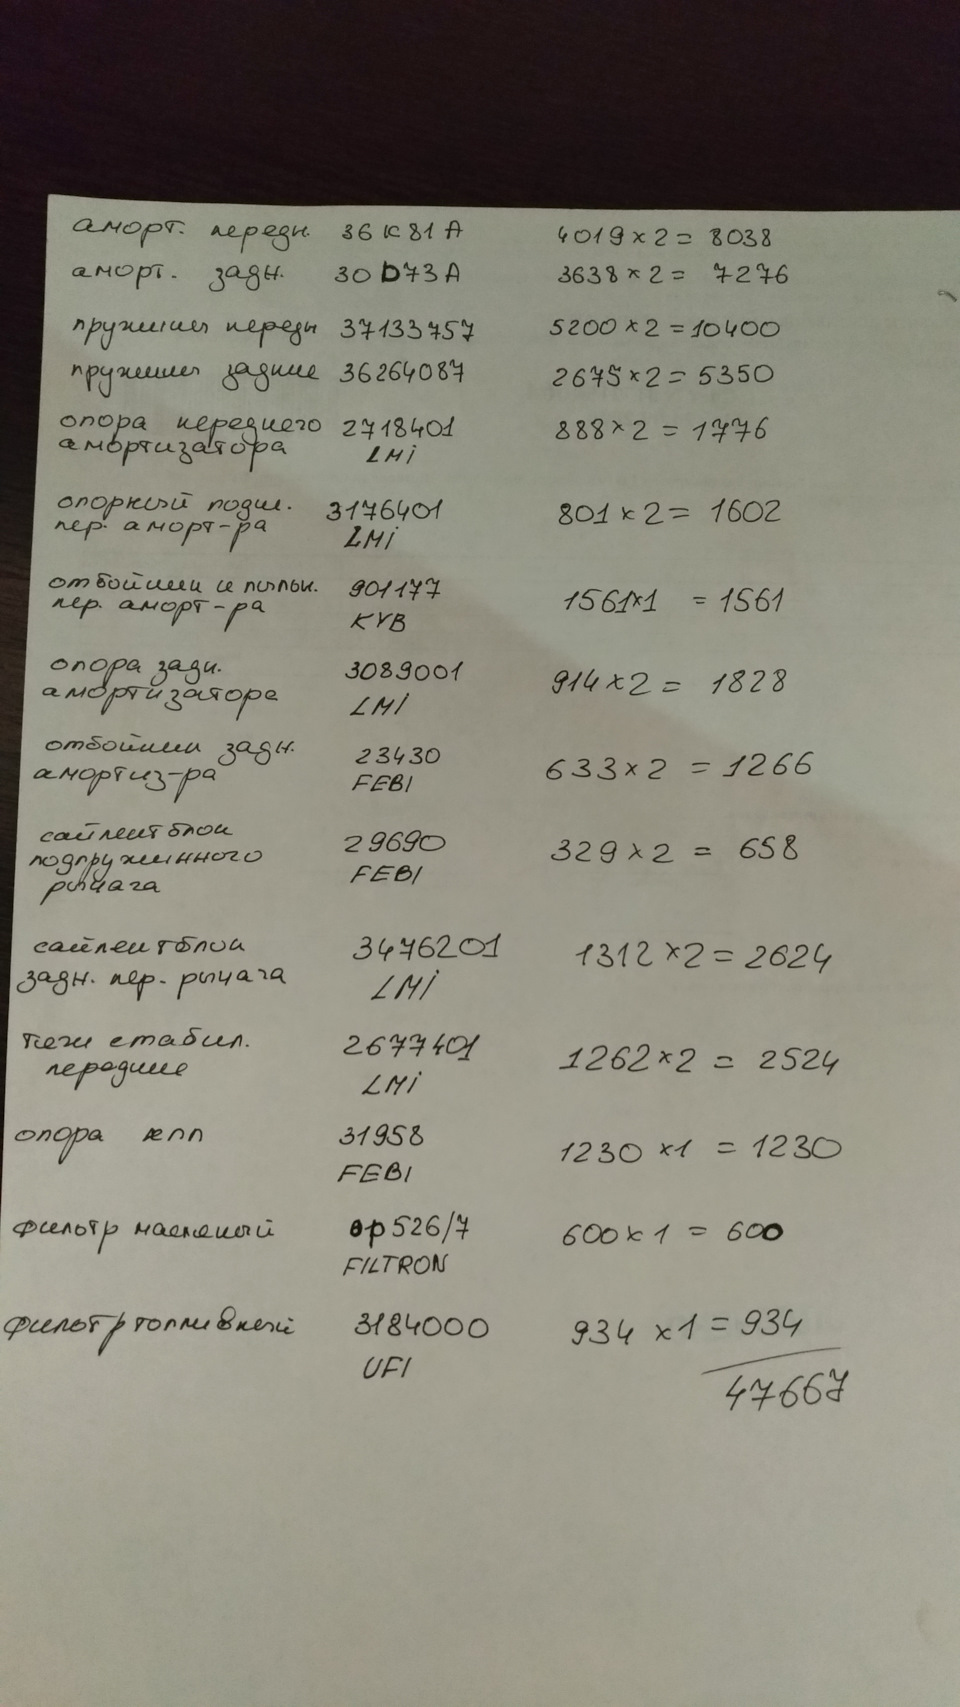 аморт. передн. 36K81A 4019×2= 8038
аморт. задн. 30D73A 3638×2= 7276
пружины передн 37133757 5200×2=10400
пружины задние 36264087 2675×2=5350
опора переднего 2718401 888×2=1776
амортизатора LMi
опорный подш. 3176401 801×2= 1602
пер. аморт-ра LMi
отбойники и пыльн. 901177 1561×1 =1561
пер. аморт-ра KYB
опора задн. 3089001 914×2= 1828
амортизатора LMi
отбойники задн. 23430 633×2 =1266
амортиз-ра FEBI
сайлентблоки 29690 329×2 = 658
подпружинного FEBI
рычага
сайлентблоки 3476201 1312×2=2624
задн. пер. рычага LMi
тяги стабил. 2677401 1262×2 = 2524
передние LMi
опора кпп 31958 1230×1 =1230
FEBI
фильтр масляный op526/7 600×1 = 600
FILTRON
фильтр топливный 3184000 934×1=934
UFI 47667